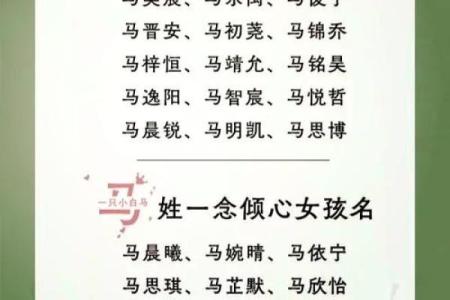 马晋安、马初尧、马锦乔
马梓恒、马靖允、马铭昊
马逸阳、马智宸、马悦哲
马晨锐、马明凯、马思博
马
一只小白马
姓一念倾心女孩名
马晨曦、马婉晴、马依宁
马思琪、马芷默、马欣怡